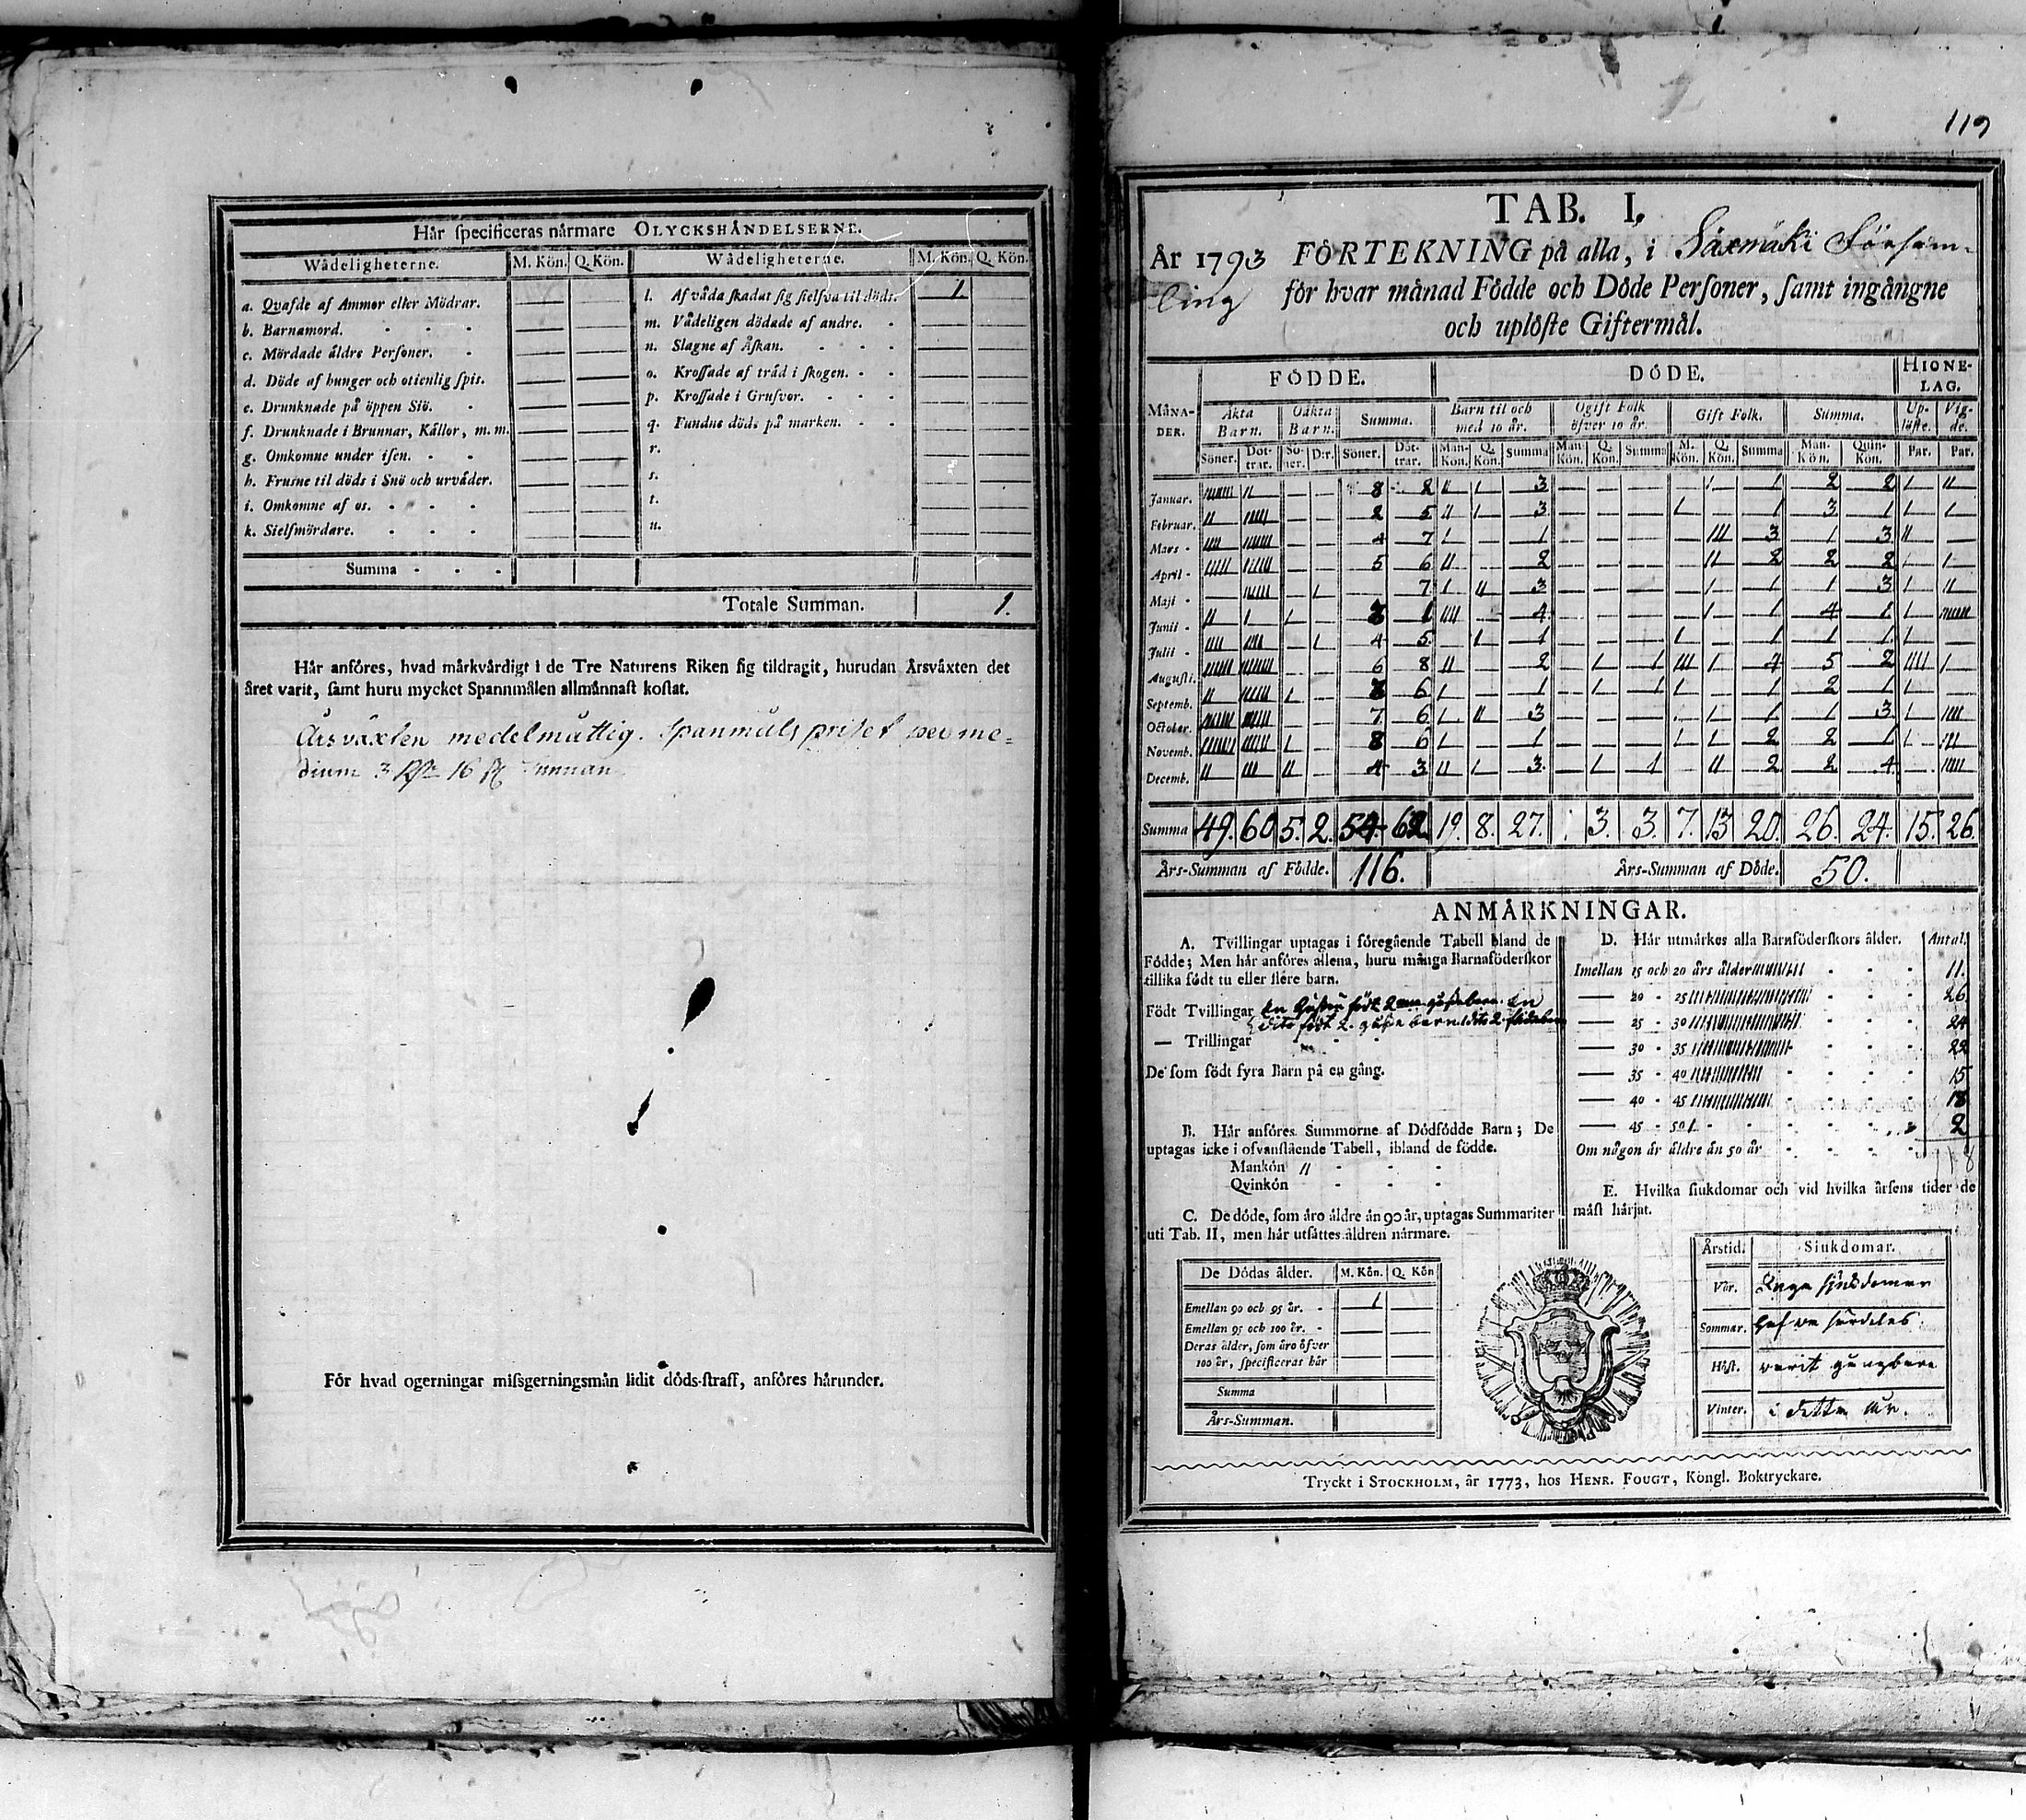 Här specificeras närmare OLYCKSHÄNDELSERNE.
Wådeligheterne. M. Kön. Q. Kön. Wådeligheterne. M. Kön. Q. Kön.
a. Qvafde af Ammor eller Mödrar. — — l. Af våda skadat sig sielfva til döds. 1 —
b. Barnamord. — — m. Vådeligen dödade af andre. — —
c. Mördade äldre Personer. — — n. Slagne af Åskan. — —
d. Döde af hunger och otienlig spis. — — o. Krossade af träd i skogen. — —
e. Drunknade på öppen Siö. — — p. Krossade i Grufvor. — —
f. Drunknade i Brunnar, Källor, m. m. — — q. Fundne döde på marken. — —
g. Omkomne under isen. — — r. — —
h. Frusne til döds i Snö och urväder. — — s. — —
i. Omkomne af os. — — t. — —
k. Sielfmördare. — — u. — —
Summa
Totale Summan. 1.
Här anföres, hvad märkvärdigt i de Tre Naturens Riken sig tildragit, hurudan Årsväxten det
året varit, samt huru mycket Spannmålen allmännast kostat.
Årsväxten medelmåttig. Spanmåls priset per me=
dium 3 16 Tunnan
För hvad ogerningar missgerningsmän lidit döds-straff, anföres härunder.
119
TAB. I.
År 1793 FÖRTEKNING på alla, i Säxmäki Församling
för hvar månad Födde och Döde Personer, samt ingångne
och uplöste Giftermål.
FÖDDE. DÖDE. HIONE-
LAG.
MÅNA-
DER. Äkta
Barn. Oäkta
Barn. Summa. Barn til och
med 10 år. Ogift Folk
öfver 10 år. Gift Folk. Summa. Up-
löste. Vig-
de.
Söner. Döt-
trar. Sö-
ner. D:r. Söner. Döt-
trar. Man-
Kön. Q.
Kön. Summa Man
Kön. Q.
Kön. Summa M.
Kön. Q.
Kön. Summa Man-
Kön. Quin-
Kön. Par. Par.
Januar. 8 2 3 1 2 2
Februar. 2 5 3 1 3 1
Mars 4 7 1 3 1 3
April 5 6 2 2 2 2
Maji 7 3 1 1 3
Junii 3 1 4 1 4 1
Julii 4 5 1 1 1 1
Augusti. 6 8 2 1 4 5 2
Septemb. 3 6 1 1 1 2 1
October. 7 6 3 1 1 3
Novemb. 8 6 1 2 2 1
Decemb. 4 3 3 1 2 2 4
Summa 49. 60 5. 2. 54 62 19. 8. 27. 3. 3. 7. 13 20. 26. 24. 15. 26.
Års-Summan af Födde. 116. Års-Summan af Döde. 50.
ANMÄRKNINGAR.
A. Tvillingar uptagas i föregående Tabell bland de
Födde; Men här anföres allena, huru många Barnaföderskor
tillika födt tu eller flere barn.
Födt Tvillingar
— Trillingar
De som födt fyra Barn på en gång.
B. Här anföres Summorne af Dödfödde Barn; De
uptagas icke i ofvanstående Tabell, ibland de födde.
Mankön 11
Qvinkön
C. De döde, som äro äldre än 90 år, uptagas Summariter
uti Tab. II, men här utsättes åldren närmare.
De Dödas ålder. M. Kön. Q. Kön
Emellan 90 och 95 år. 1 —
Emellan 95 och 100 år. — —
Deras ålder, som äro öfver
100 år, specificeras här — —
Summa
Års-Summan.
D. Här utmärkes alla Barnföderskors ålder. Antal.
Imellan 15 och 20 års ålder 11.
— 20 - 25 26
— 25 - 30 24
— 30 - 35 22
— 35 - 40 15
— 40 - 45 18
— 45 - 50 2
Om någon är äldre än 50 år
E. Hvilka siukdomar och vid hvilka årsens tider de
mäst härjat.
Årstid. Siukdomar.
Vår. Inga sjukdomar
Sommar. hafva särdeles
Höst. varit gångbara
Vinter. i detta år.
Tryckt i STOCKHOLM, år 1773, hos HENR. FOUGT, Kongl. Boktryckare.